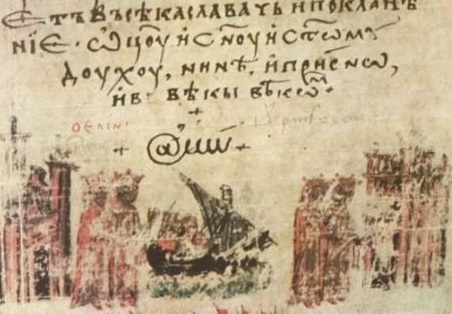 Єтъ въсѣка слава чь и покланѣ
нїе · ѡц҃оу и с҃ноу и ст҃омꙋ
доухоу, нинѣ, и присно,
и въ вѣкы вѣкѡⷨ
+
+ @мин +